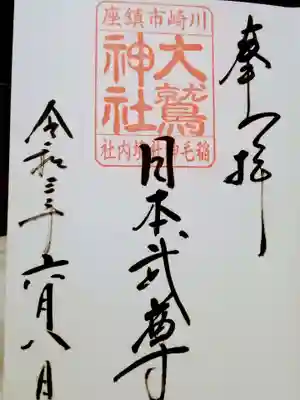 奉拝
川崎市鎮座
大鷲
神社
稲毛神社境内社
日本武尊
令和三年六月八日